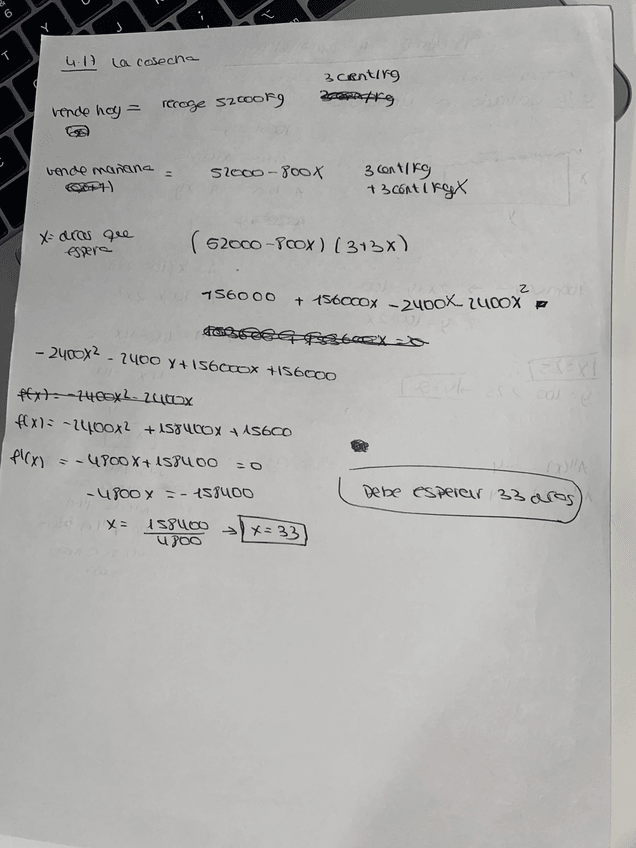 4.17 La cosecha
vende hoy = recoge 52000kg 3 cent/kg
vende mañana = 52000-800X 3 cent/kg
+3cent/kgX
X= días que espera
(52000-800X)(3+3X)
156000 + 156000X - 2400X - 2400X²
-2400X² - 2400X + 156000X + 156000
f(x) = -2400x² - 2400x
f(x) = -2400x² + 158400x + 15600
f'(x) = -4800x + 158400 = 0
-4800X = -158400
X = 158400/4800 → X=33
Debe esperar 33 días